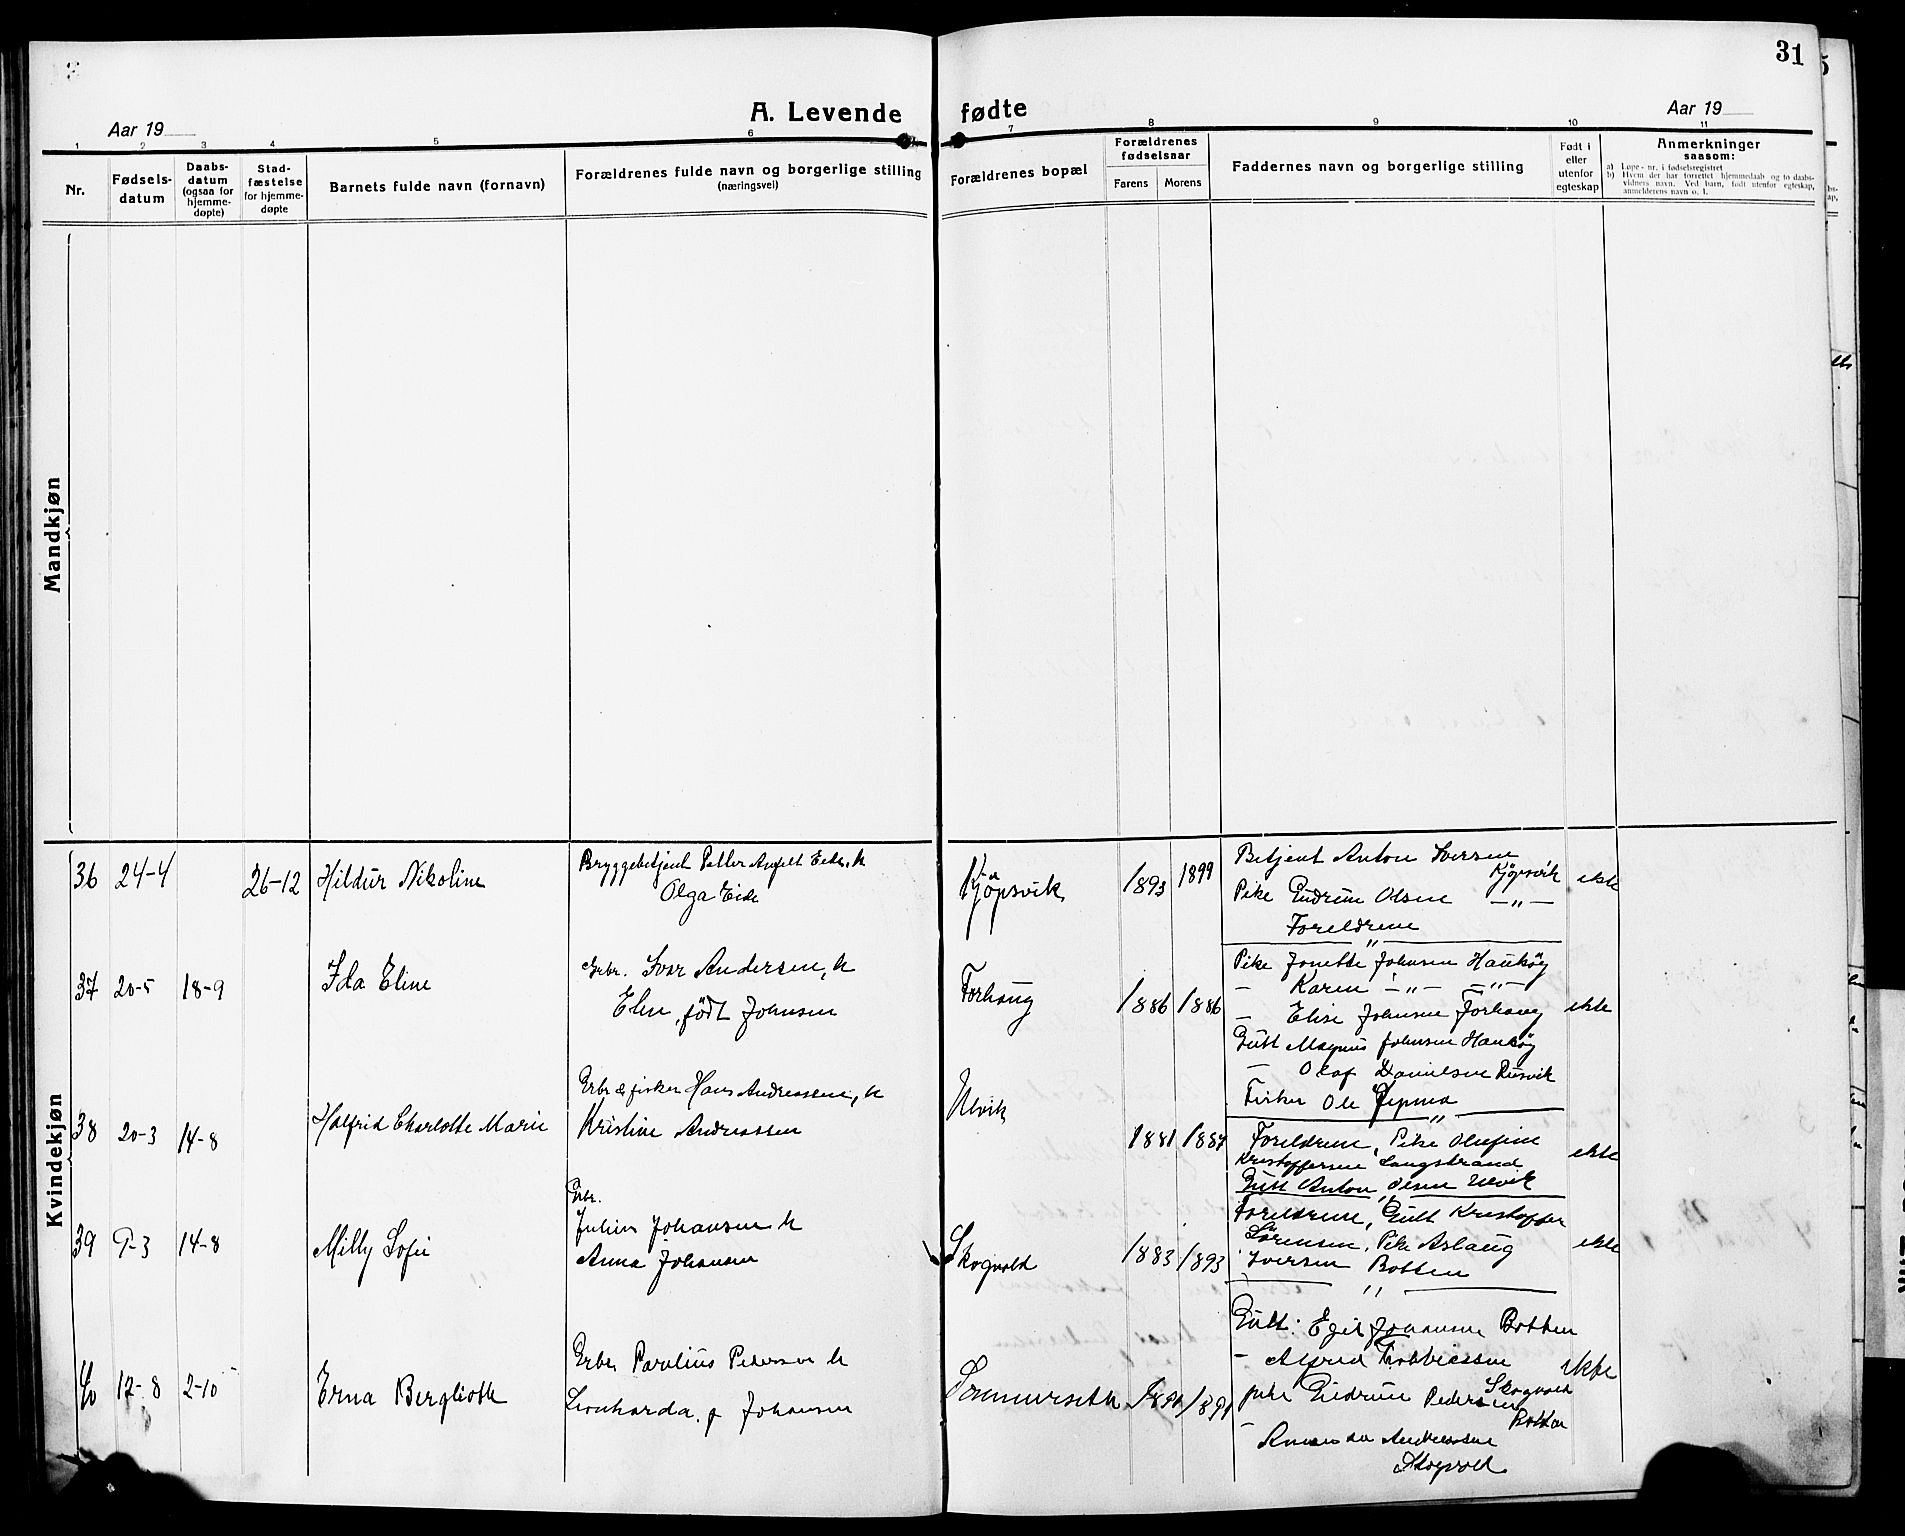 31
A. Levende fødte
Aar 19
Aar 19
1 2 3 4 5 6 7 8 9 10 11
Nr.
Fødsels-
datum
Daabs-
datum
(ogsaa for
hjemme-
døpte)
Stad-
fæstelse
for hjemme-
døpte
Barnets fulde navn (fornavn)
Forældrenes fulde navn og borgerlige stilling
(næringsvei)
Forældrenes bopæl
Forældrenes
fødselsaar
Farens
Morens
Faddernes navn og borgerlige stilling
Født i
eller
utenfor
egteskap
Anmerkninger
saasom:
a) Løpe-nr. i fødselsregistret
b) Hvem der har forrettet hjemmedaab og to daabs-
vidners navn. Ved barn, født utenfor egteskap,
anmelderens navn o. l.
Mandkjøn
Kvindekjøn
36 24-4 26-12 Hildur Nikoline
Bryggebetjent Petter Eide, h
Olga Eide
Kjøpsvik 1893 1899
Betjent Anton Iversen
Kjøpsvik
Pike Gudrun Olsen —„—
Foreldrene
ekte
37 20-5 18-9 Ida Eline
Grbr. Ivar Andersen, h
Elen, født Johnsen
Forhaug 1886 1886
Pike Jonette Johnsen Haukøy
— Karen —„— —„—
— Elise Johnsen Forhaug
Gutt Magnus Johnsen Haukøy
— Olaf Danielsen
Fisker Ole
ekte
38 20-3 14-8 Halfrid Charlotte Marie
Grbr & fisker Hans Andreassen, h
Kristine Andreassen
Ulvik 1881 1887
Foreldrene, Pike Olufine
Kristoffersen Langstrand
Gutt Anton Olsen Ulvik
ekte
39 9-3 14-8 Milly Sofie
Grbr.
Julius Johansen h
Anna Johansen
Skogvold 1883 1893
Foreldrene, Gutt Kristoffer
Sörensen, Pike Aslaug
Iversen Botten
ekte
40 17-8 2-10 Erna Bergliotte
Grbr Parelius Pedersen h
Leonharda, f Johansen
Sommerseth 1891
Gutt: Egil Johansen Botten
— Alfred
pike Gudrun Pedersen
Skogvold
Botten
— Amanda Andreassen
Skogvold
ekte